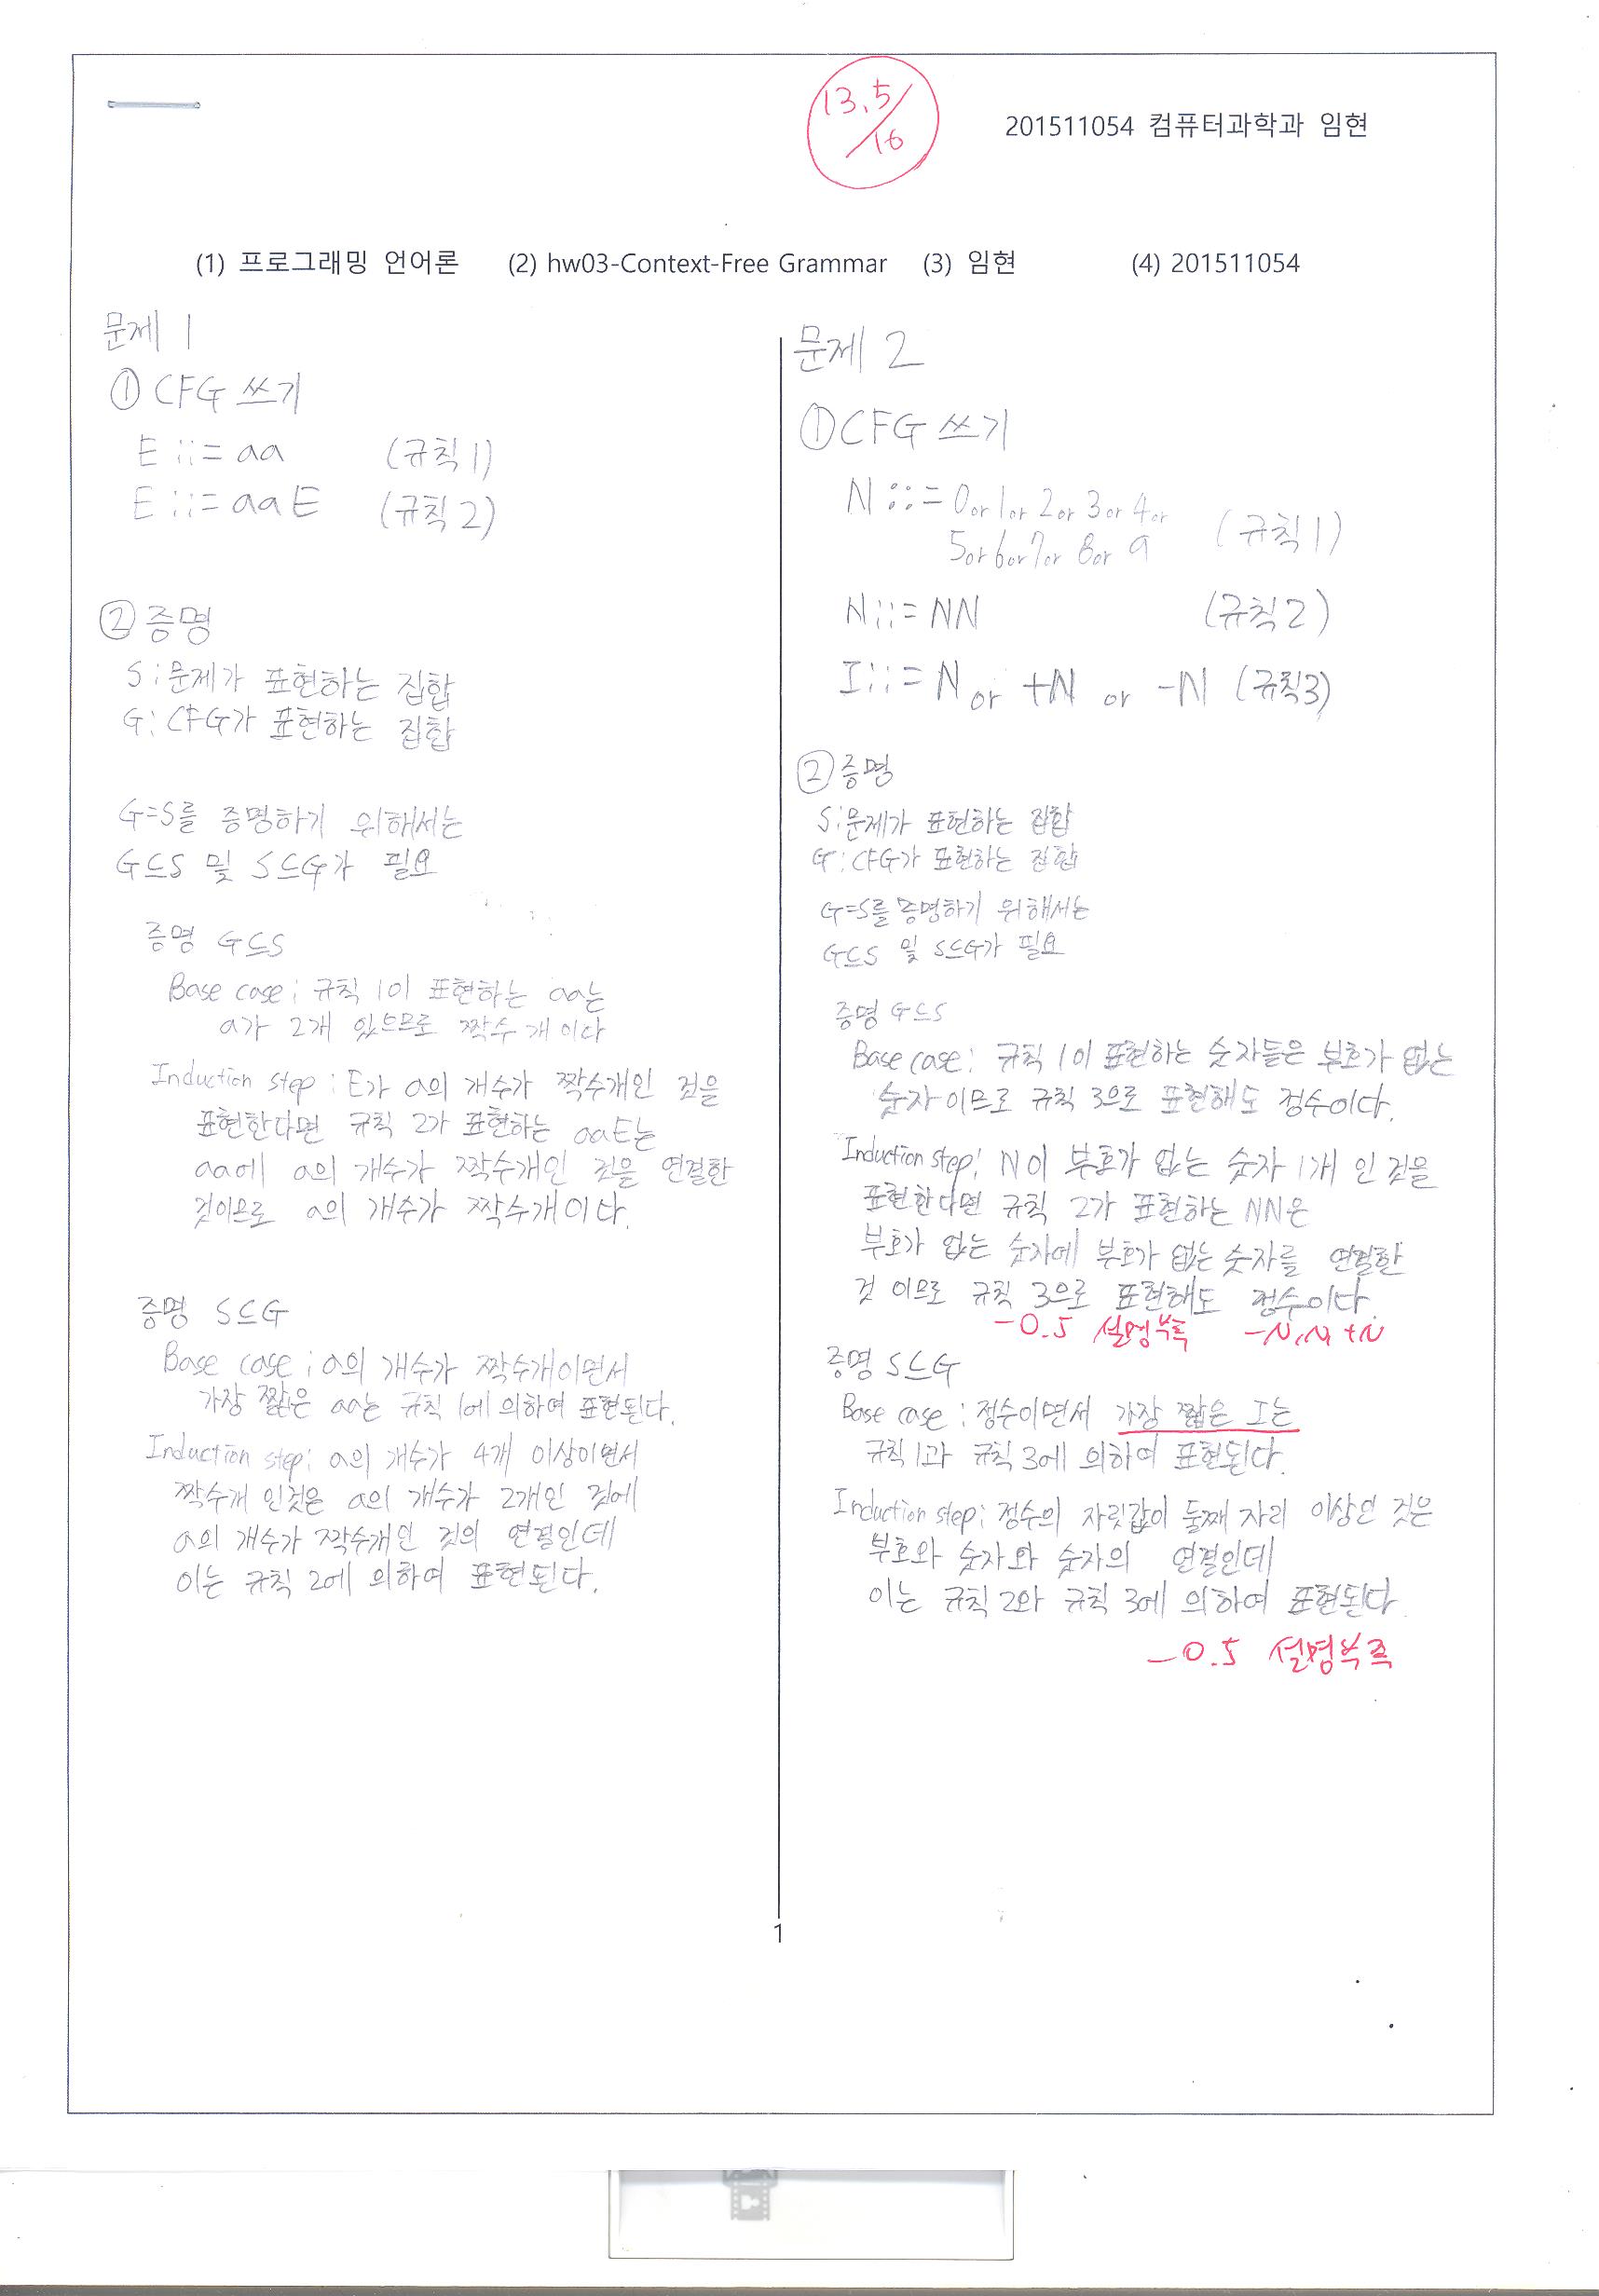 13.5/16
201511054 컴퓨터과학과 임현
(1) 프로그래밍 언어론 (2) hw03-Context-Free Grammar (3) 임현 (4) 201511054
문제 1
① CFG 쓰기
E ::= aa (규칙 1)
E ::= aaE (규칙 2)
② 증명
S : 문제가 표현하는 집합
G : CFG가 표현하는 집합
G=S를 증명하기 위해서는
G⊆S 및 S⊆G가 필요
증명 G⊆S
Base case : 규칙 1이 표현하는 aa는
a가 2개 있으므로 짝수 개이다
Induction step : E가 a의 개수가 짝수개인 것을
표현한다면 규칙 2가 표현하는 aaE는
aa에 a의 개수가 짝수개인 것을 연결한
것이므로 a의 개수가 짝수개이다.
증명 S⊆G
Base case : a의 개수가 짝수개이면서
가장 짧은 aa는 규칙 1에 의하여 표현된다.
Induction step : a의 개수가 4개 이상이면서
짝수개 인것은 a의 개수가 2개인 것에
a의 개수가 짝수개인 것의 연결인데
이는 규칙 2에 의하여 표현된다.
문제 2
① CFG 쓰기
N ::= 0 or 1 or 2 or 3 or 4 or
5 or 6 or 7 or 8 or 9 (규칙 1)
N ::= NN (규칙 2)
I ::= N or +N or -N (규칙3)
② 증명
S : 문제가 표현하는 집합
G : CFG가 표현하는 집합
G=S를 증명하기 위해서는
G⊆S 및 S⊆G가 필요
증명 G⊆S
Base case : 규칙 1이 표현하는 숫자들은 부호가 없는
숫자이므로 규칙 3으로 표현해도 정수이다.
Induction step : N이 부호가 없는 숫자 1개 인 것을
표현한다면 규칙 2가 표현하는 NN은
부호가 없는 숫자에 부호가 없는 숫자를 연결한
것 이므로 규칙 3으로 표현해도 정수이다.
-0.5 설명부족 -N, N, +N
증명 S⊆G
Base case : 정수이면서 가장 짧은 I는
규칙1과 규칙 3에 의하여 표현된다.
Induction step : 정수의 자릿값이 둘째 자리 이상인 것은
부호와 숫자와 숫자의 연결인데
이는 규칙 2와 규칙 3에 의하여 표현된다
-0.5 설명부족
1